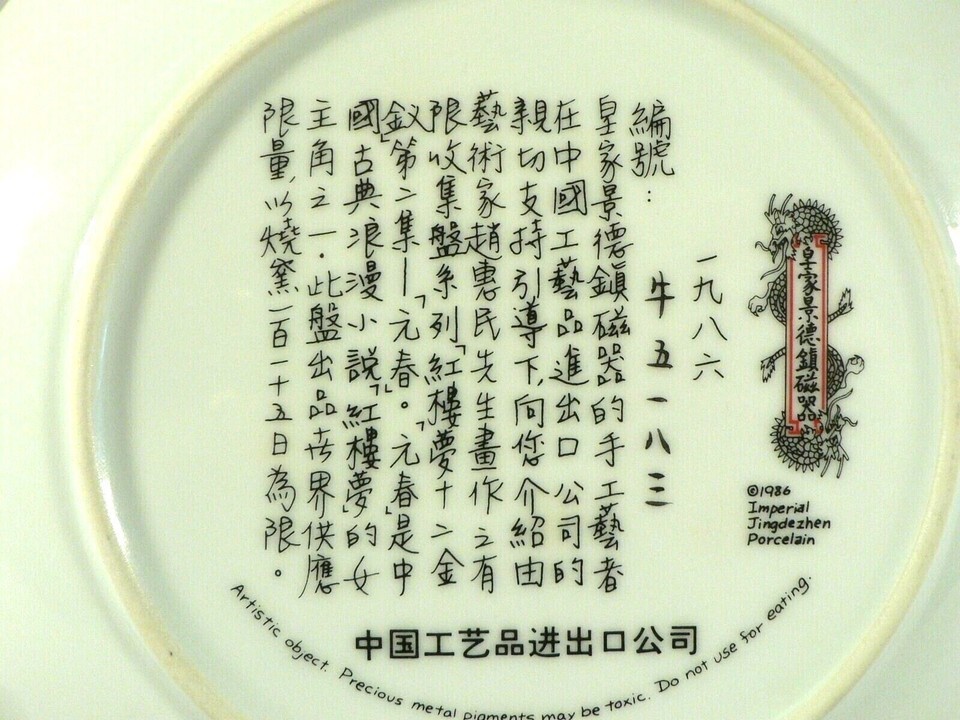 皇家景德鎮磁器
©1986
Imperial
Jingdezhen
Porcelain
一九八六
牛五一八三
編號：
皇家景德鎮磁器的手工藝者
在中國工藝品進出口公司的
親切支持引導下,向您介紹由
藝術家趙惠民先生畫作之有
限收集盤系列「紅樓夢十二金
釵」第二集—「元春」。「元春」是中
國古典浪漫小說「紅樓夢」的女
主角之一．此盤出品世界供應
限量,以燒窯一百一十五日為限。
中国工艺品进出口公司
Artistic object. Precious metal pigments may be toxic. Do not use for eating.